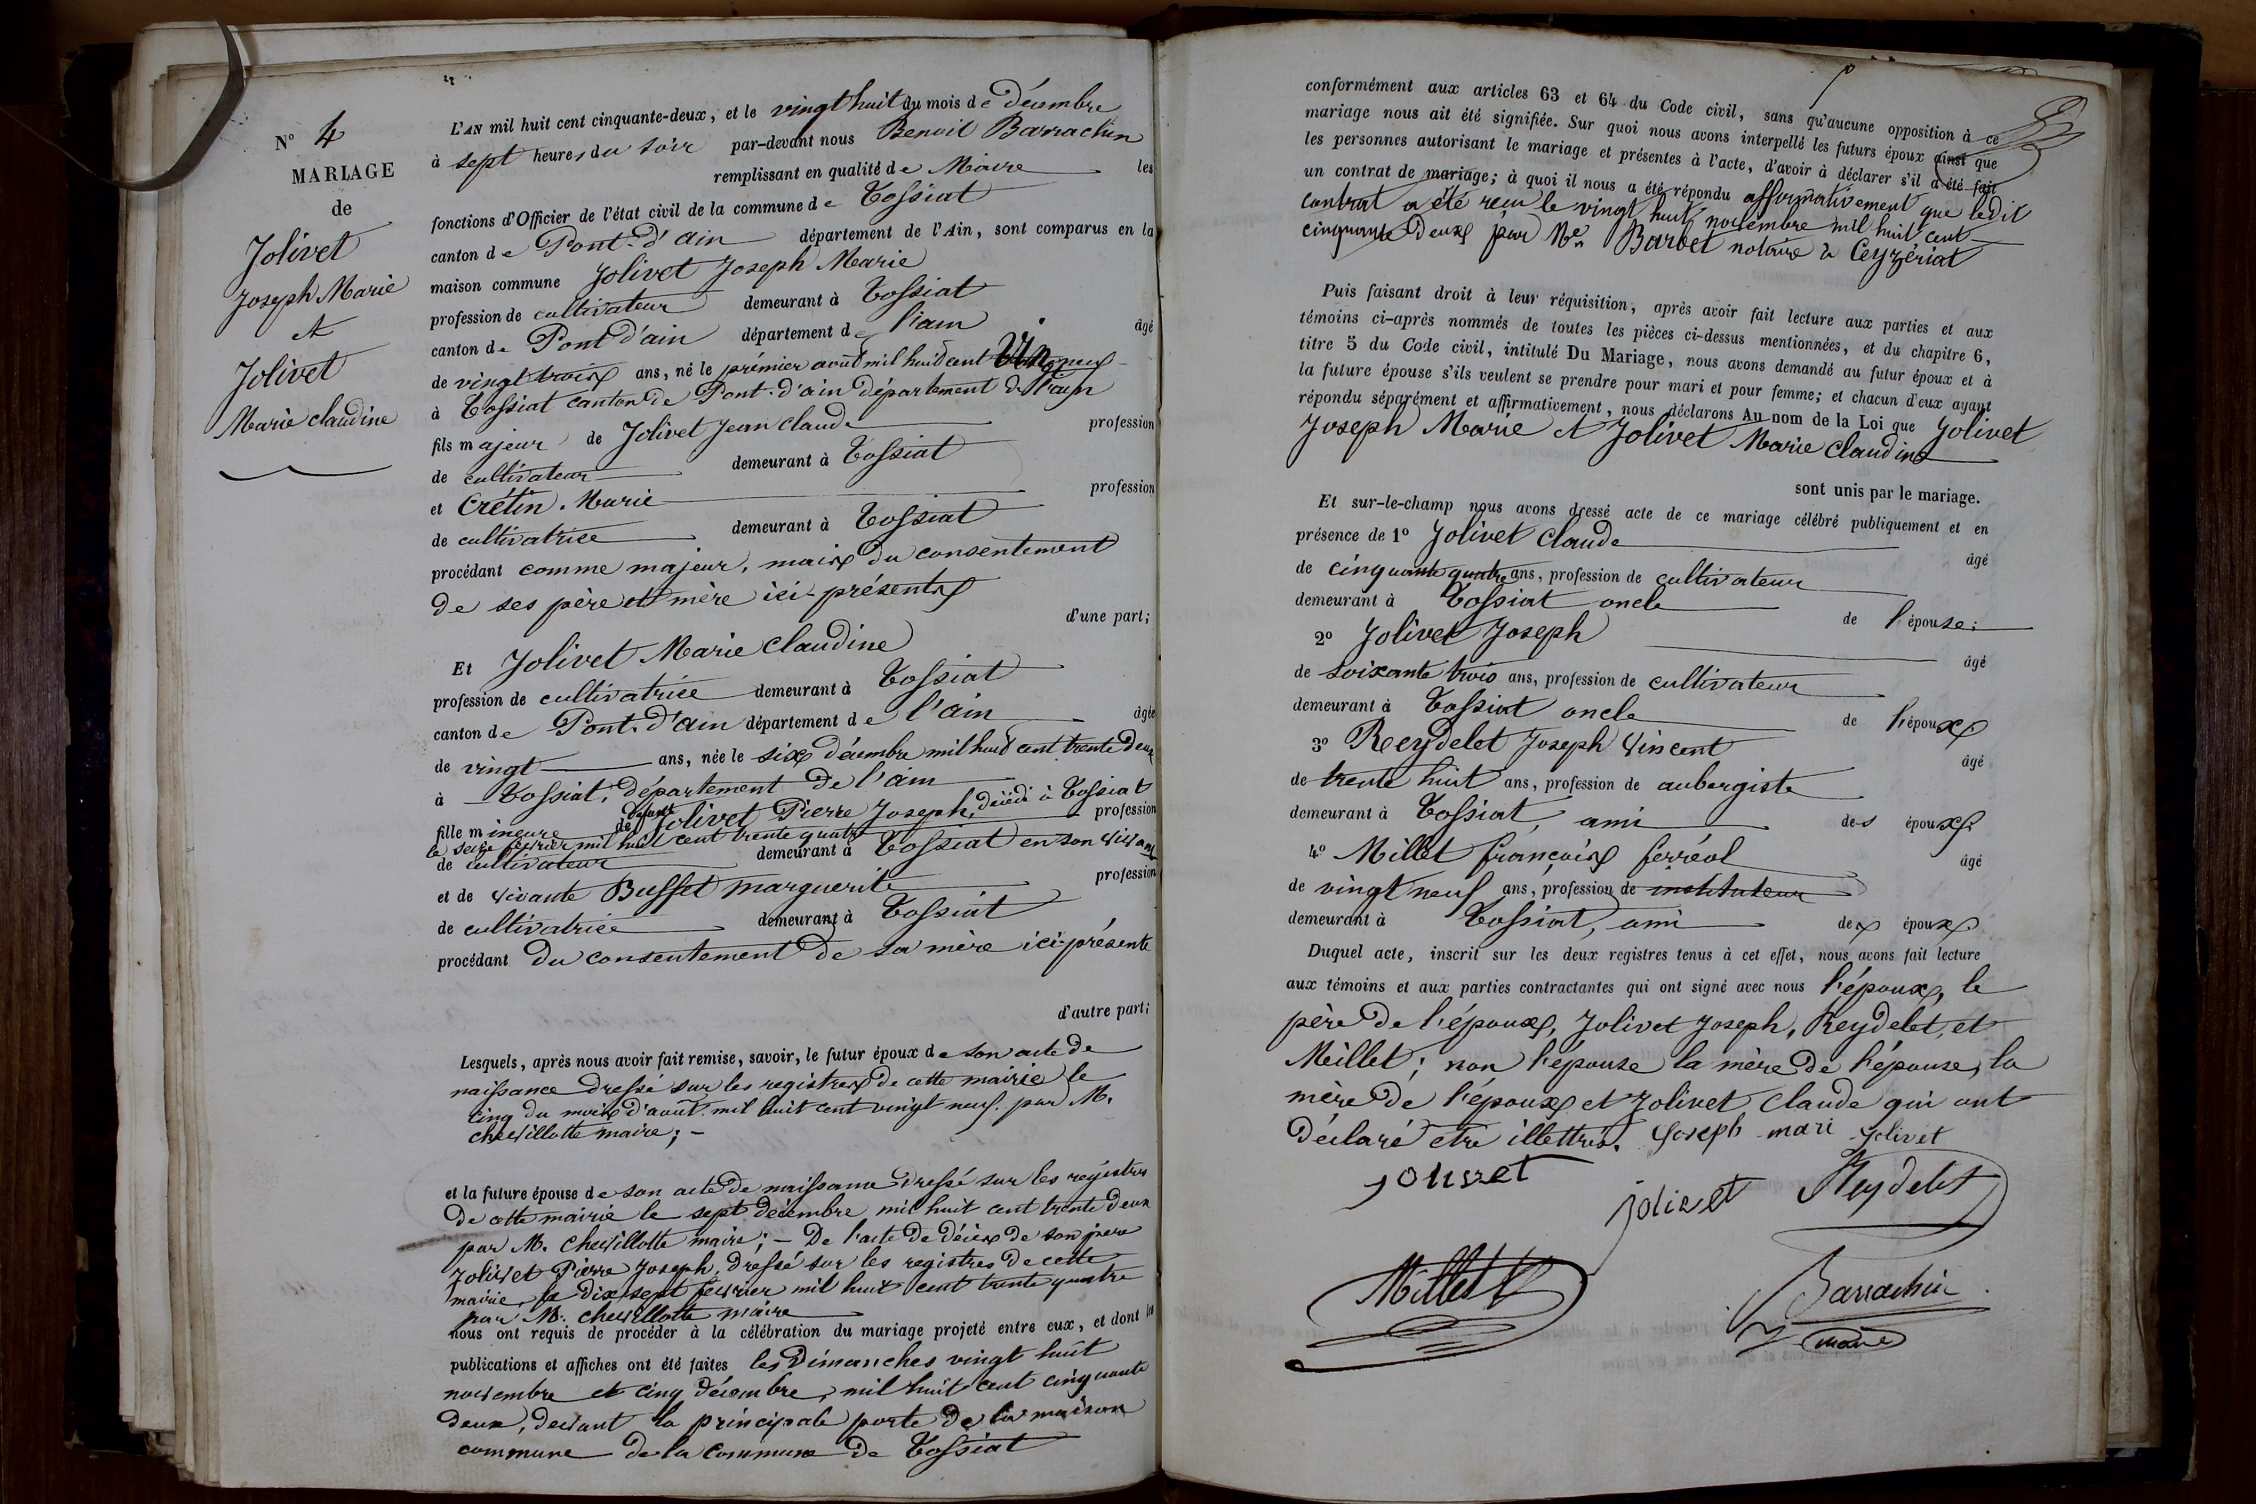 N° 4
MARIAGE
de
Jolivet
Joseph Marie
et
Jolivet
Marie claudine
L'AN mil huit cent cinquante-deux, et le vingt huit du mois de Décembre
à sept heures du soir par-devant nous Benoit Barrachin
remplissant en qualité de Maire les
fonctions d'Officier de l'état civil de la commune de Tossiat
canton de Pont-d'ain département de l'Ain, sont comparus en la
maison commune Jolivet Joseph Marie
profession de cultivateur demeurant à Tossiat
canton de Pont d'ain département de l'ain âgé
de vingt trois ans, né le prémier août mil huit cent Vingt neuf
à Tossiat canton de Pont-d'ain département de l'ain
fils majeur de Jolivet Jean claude profession
de cultivateur demeurant à Tossiat
et Crétin Marie profession
de cultivatrice demeurant à Tossiat
procédant comme majeur, mais du consentement
de ses père et mère ici-présents
d'une part;
Et Jolivet Marie Claudine
profession de cultivatrice demeurant à Tossiat
canton de Pont-d'ain département de l'ain âgée
de vingt ans, née le six décembre mil huit cent trente deux
à Tossiat, département de l'ain
fille mineure de défunt Jolivet Pierre Joseph, décédé à Tossiat profession
le seize février mil huit cent trente quatre
de cultivateur demeurant à Tossiat en son vivant
et de vivante Buffet marguerite profession
de cultivatrice demeurant à Tossiat
procédant du consentement de sa mère ici-présente
d'autre part;
Lesquels, après nous avoir fait remise, savoir, le futur époux de son acte de
naissance dressé sur les registres de cette mairie le
cinq du mois d'août mil huit cent vingt neuf par M.
chevillotte maire; -
et la future épouse de son acte de naissance dressé sur les registres
de cette mairie le sept décembre mil huit cent trente deux
par M. chevillotte maire; - De l'acte de décès de son père
Jolivet Pierre Joseph, dressé sur les registres de cette
mairie, le dix sept fevrier mil huit cent trente quatre
par M. chevillotte maire
nous ont requis de procéder à la célébration du mariage projeté entre eux, et dont les
publications et affiches ont été faites les Dimanches vingt huit
novembre et cinq décembre, mil huit cent cinquante
deux, devant la principale porte de la maison
commune de la commune de Tossiat
conformément aux articles 63 et 64 du Code civil, sans qu'aucune opposition à ce
mariage nous ait été signifiée. Sur quoi nous avons interpellé les futurs époux ainsi que
les personnes autorisant le mariage et présentes à l'acte, d'avoir à déclarer s'il a été fait
un contrat de mariage; à quoi il nous a été répondu affirmativement que ledit
contrat a été reçu le vingt huit novembre mil huit cent
cinquante deux par Me Barbet notaire à Ceyzériat
Puis faisant droit à leur réquisition, après avoir fait lecture aux parties et aux
témoins ci-après nommés de toutes les pièces ci-dessus mentionnées, et du chapitre 6,
titre 5 du Code civil, intitulé Du Mariage, nous avons demandé au futur époux et à
la future épouse s'ils veulent se prendre pour mari et pour femme; et chacun d'eux ayant
répondu séparément et affirmativement, nous déclarons Au nom de la Loi que Jolivet
Joseph Marie et Jolivet Marie Claudine
sont unis par le mariage.
Et sur-le-champ nous avons dressé acte de ce mariage célébré publiquement et en
présence de 1° Jolivet Claude âgé
de cinquante quatre ans, profession de cultivateur
demeurant à Tossiat oncle de l'épouse;
2° Jolivet Joseph âgé
de soixante trois ans, profession de cultivateur
demeurant à Tossiat oncle de l'époux
3° Reydelet Joseph Vincent âgé
de trente huit ans, profession de aubergiste
demeurant à Tossiat, ami des époux
4° Millet françois ferréol âgé
de vingt neuf ans, profession de instituteur
demeurant à Tossiat, ami des époux
Duquel acte, inscrit sur les deux registres tenus à cet effet, nous avons fait lecture
aux témoins et aux parties contractantes qui ont signé avec nous l'époux, le
père de l'époux, Jolivet Joseph, Reydelet, et
Meillet; non l'épouse la mère de l'épouse, la
mère de l'époux et Jolivet Claude qui ont
déclaré etre illettrés. Joseph mari Jolivet
Jolivet
jolivet Reydelet
Millet
Barrachin
maire